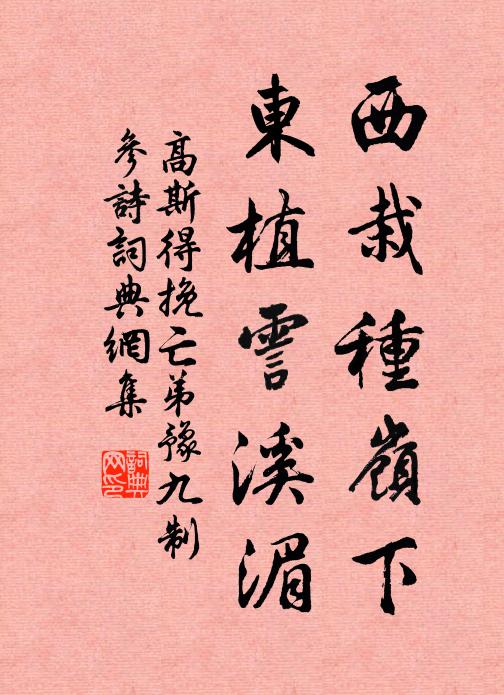 西栽種嶺下
東植霅溪湄
高斯得挽亡弟豫九制
參詩詞典網集
詞典網印